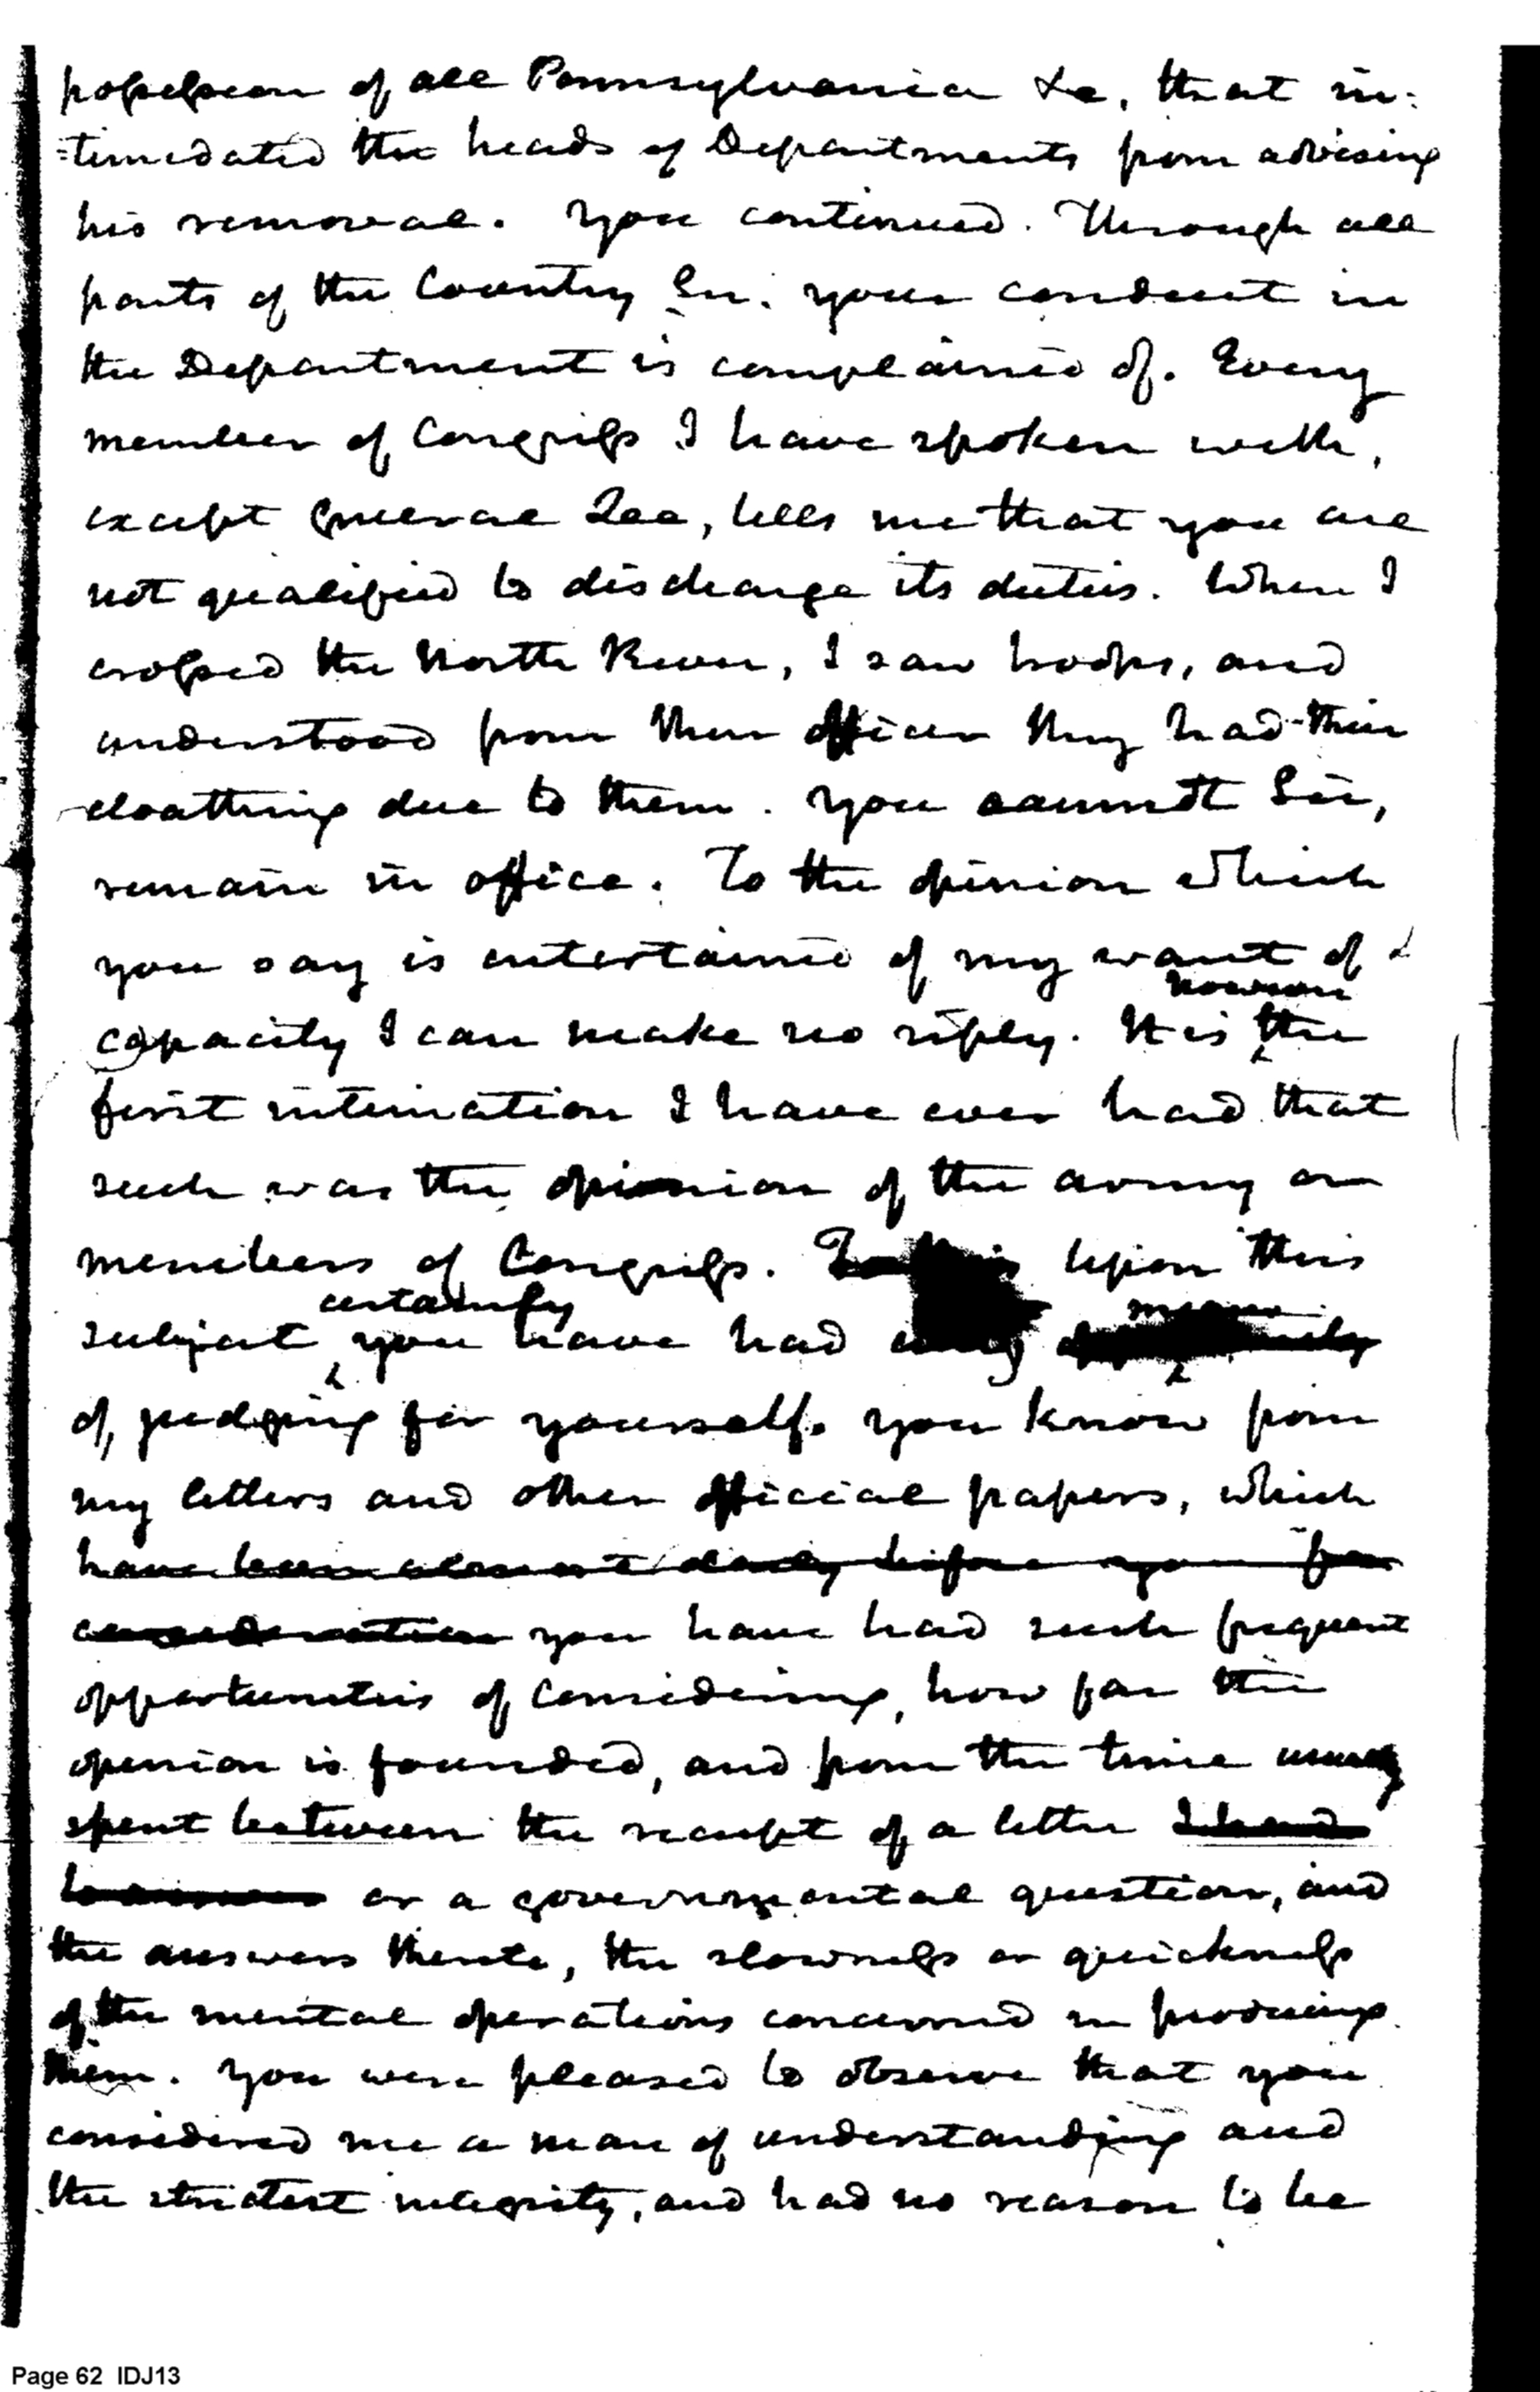 possession of all Pennsylvania &c, that in=
=timidated the heads of Departments from advising
his removal. You continued. Through all
parts of the Country Sir. your conduct in
the Department is complained of. Every
member of Congress I have spoken with,
except General Lee, tells me that you are
not qualified to discharge its duties. When I
crossed the North River, I saw troops, and
understood from their officer they had their
cloathing due to them. You cannot Sir,
remain in office. To the opinion which
you say is entertained of my want of
capacity I can make no reply. It is however the
first intimation I have ever had that
such was the opinion of the army or
members of Congress. Upon this
subject certainly you have had many means
of, judging for yourself. You know from
my letters and other official papers, which
have been almost daily before you for
consideration you have had such frequent
opportunities of considering, how far the
opinion is founded, and from the time usually
spent between the receipt of a letter I had
to answer or a governmental question, and
the answers thereto, the slowness or quickness
of the mental operations concerned in producing
them. You were pleased to observe that you
considered me a man of understanding and
the strictest integrity, and had no reason to be
Page 62 IDJ13